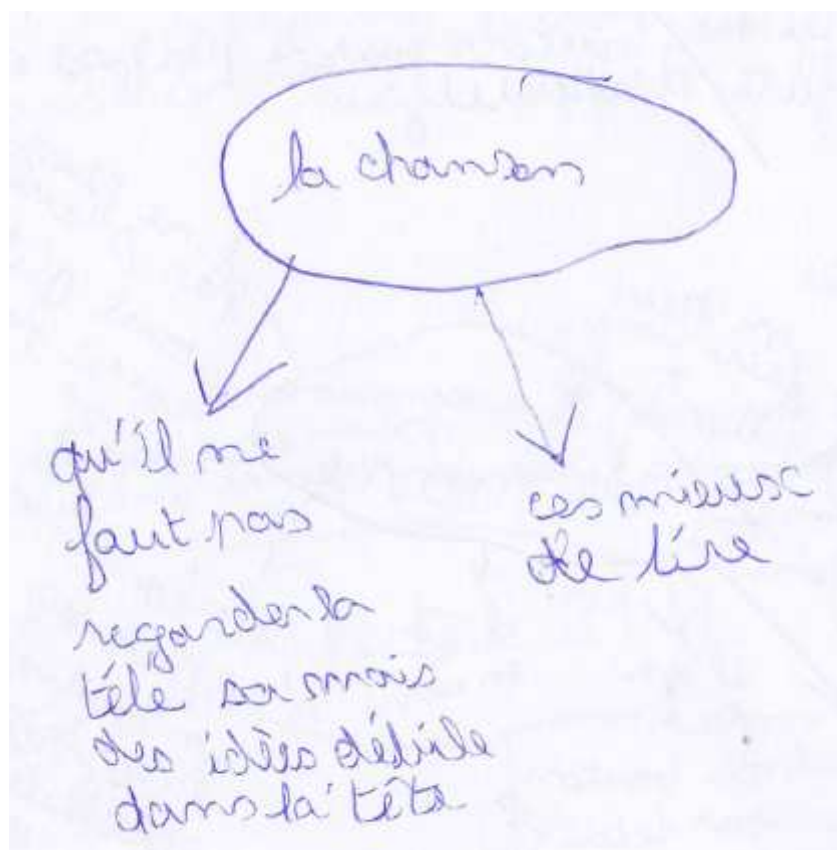 la chanson
qu'il ne
faut pas
regarder la
télé sa mais
des idées débile
dans la tête
ces mieux
de lire